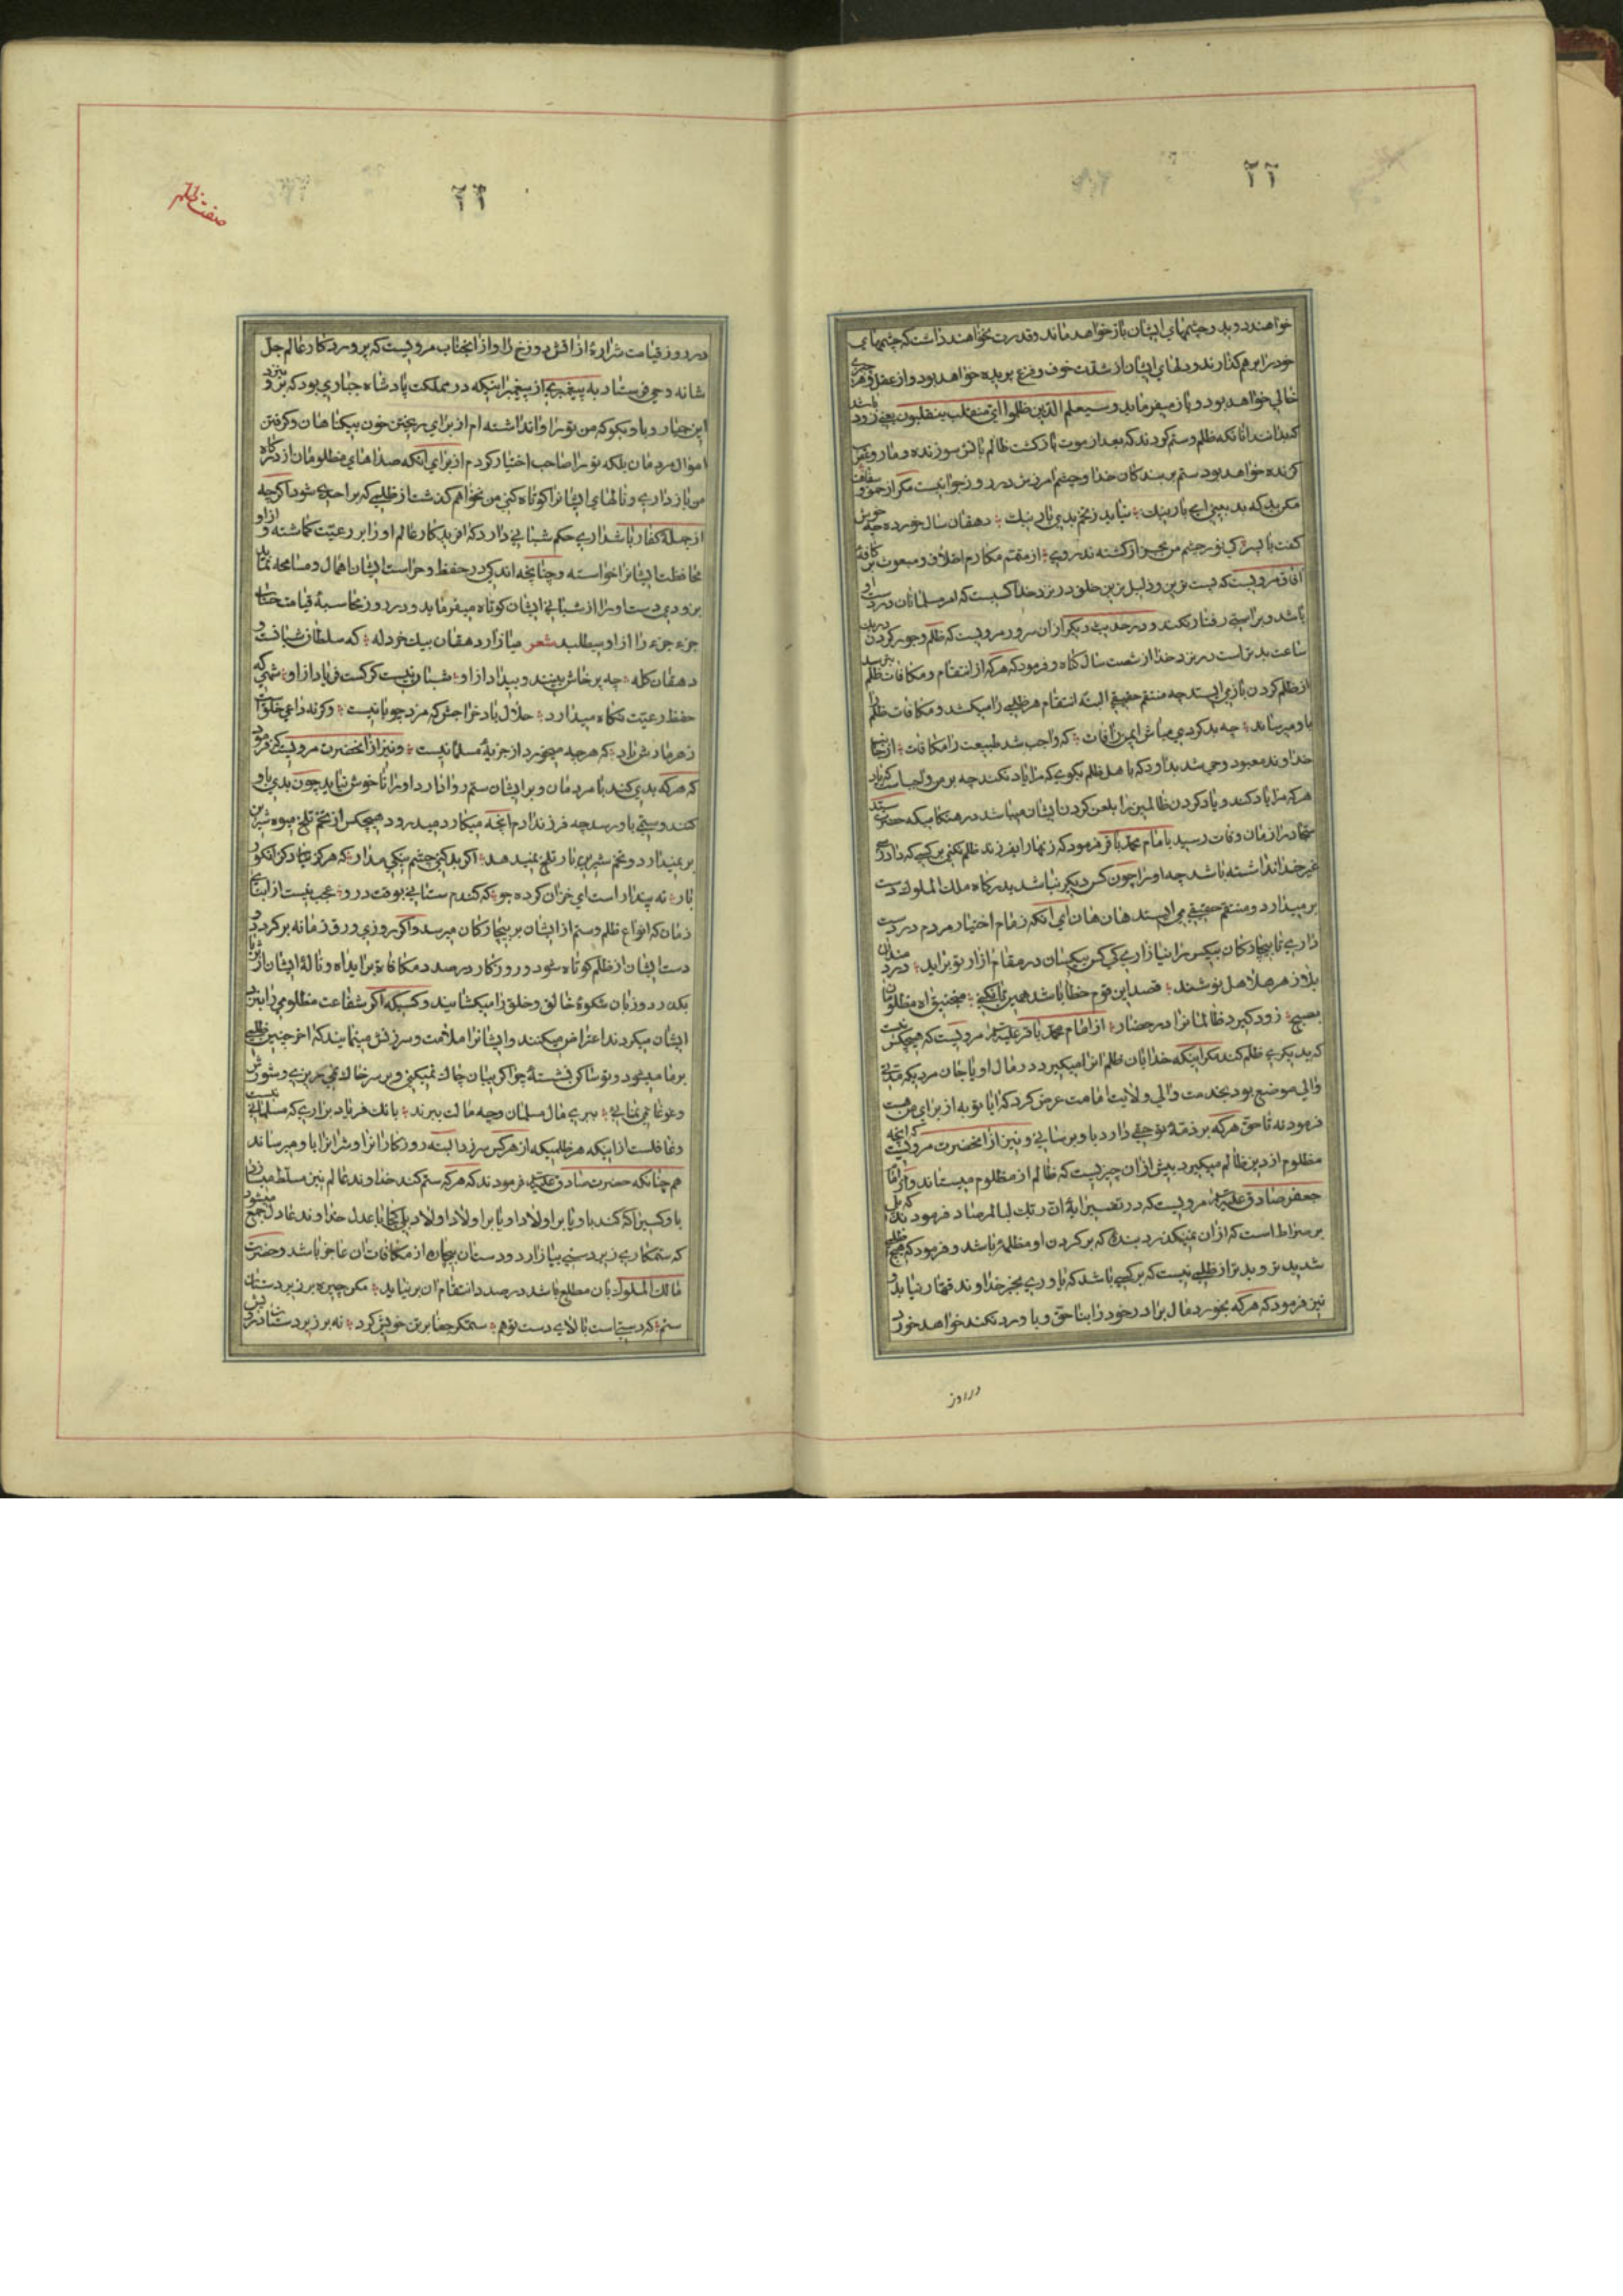 خواهند دوید و چشمهای ایشان باز خواهد ماند و قدرت نخواهند داشت که چشمهای
خود را بر هم گذارند و دلهای ایشان از شدت خوف و فزع پریده خواهد بود و از عقل و
خالی خواهد بود و باز میفرماید وسیعلم الذین ظلموا ای منقلب ینقلبون یعنی زود
آنانکه ظلم و ستم کردند که بعد از موت بازگشت ظالم باتش سوزنده و مار و عقرب
کزنده خواهد بود ستم بر بندکان خدا و چشم امرزش در روز جزا نیست مکر از حمق و سفاهت
مکن بد که بد بینی ای یار نیک نیاید ز تخم بدی بار نیک دهقان سال خورده چه خوش
کفت با پسر کی نور چشم من بجز از کشته ندروی از متمم مکارم اخلاق و مبعوث بر کافه
افاق مرویست که پست ترین و ذلیل ترین خلق در نزد خدا کسیست که امر مسلمانان در دست او
باشد و براستی رفتار نکند و در حدیث دیکر از ان سرور مرویست که ظلم و جور کردن در یک
ساعت بدتر است در نزد خدا از شصت سال کناه و فرمود که هرکه از انتقام و مکافات ظلم بترسد
از ظلم کردن باز می ایستد چه منتقم حقیقی البته انتقام هر ظلمی را میکشد و مکافات ظلم را
باو میرساند چه بد کردی مباش ایمن ز افات که واجب شد طبیعت را مکافات از جانب
خداوند معبود وحی شد بداود که باهل ظلم بکوی که مرا یاد نکنند چه بر من واجب است که یاد
هرکه مرا یاد کند و یاد کردن ظالمین را بلعن کردن ایشان میباشد در هنکامیکه حضرت سید
سجاد را زمان وفات رسید بامام محمد باقر فرمود که زنهار ای فرزند ظلم نکنی بر کسی که دادرسی
غیر خدا نداشته باشد چه او را چون کس دیکر نباشد بدرکاه ملک الملوک دست
بر میدارد و منتقم حقیقی می ایستد هان هان ای انکه زمام اختیار مردم در دست
داری تا بیچارکان بیکس را نیازاری که کس بیکسان در مقام ازار تو برآید
قصد این قوم خطا باشد همین تا نکنی منجنیق اه مظلومان
بصبح زود کیرد ظالمانرا در حصار از امام محمد باقر علیه مرویست که هیچکس نیست
که بدیکری ظلم کند مکر اینکه خدا بان ظلم انرا میکیرد در مال او یا جان مردیکه مدتی
والی موضع بود بخدمت والی ولایت امامت عرض کرد که ایا توبه از برای من هست
فرمود نه تا حق هرکه بر ذمه تو حقی دارد باو برسانی و نیز از انحضرت مرویست که انچه
مظلوم از دین ظالم میکیرد بیش از ان چیزیست که ظالم از مظلوم میستاند و از اقا
جعفر صادق علیه مرویست که در تفسیر ایه ان ربک لبالمرصاد فرمودند که پل
بر صراط است که از ان نمیکذرد بنده که بر کردن او مظلمه باشد و فرمود که هیچ ظلمی
شدیدتر و بدتر از ظلمی نیست که بر کسی باشد که یاوری بجز خداوند قهار نیابد و
نیز فرمود که هرکه بخورد مال برادر خود را بناحق و باو رد نکند خواهد خورد
در روز
صفت ظلم
در روز قیامت شراره از اتش دوزخ را و از انجناب مرویست که پروردکار عالم جل
شانه وحی فرستاد به پیغمبری از پیغمبر اینکه در مملکت پادشاه جباری بود که برو بنزد
این جبار و باو بکو که من تو را وانداشته ام از برای ریختن خون بیکناهان و کرفتن
اموال مردمان بلکه تو را صاحب اختیار کردم از برای انکه صداهای مظلومان از درکاه
من بازداری و نالهای ایشانرا کوتاه کنی من نخواهم کذشت از ظلمی که بر احدی شود اکرچه
از جمله کفار باشد اری حکم شبانی دارد که افریدکار عالم او را بر رعیت کماشته و از او
محافظت ایشانرا خواسته و چنانچه اندکی در حفظ و حراست ایشان اهمال و مسامحه نماید
بزودی دست او را از شبانی ایشان کوتاه میفرماید و در روز محاسبه قیامت حساب
جزء جزء را از او میطلبد شعر میازار دهقان بیک خردله که سلطان شبانست و
دهقان کله چه پرخاش بینند و بیداد از او شبان نیست کرکست فریاد از او شهی که
حفظ رعیت نکاه میدارد حلال باد خراجش که مزد چوپانیست وکرنه راعی خلق است
زهر مارش باد که هرچه میخورد از جزیه مسلمانیست و نیز از انحضرت مرویست که فرمود
که هرکه بدی کند با مردمان و بر ایشان ستم روا دارد او را ناخوش نیاید چون بدی باو
کنند و ستمی باو رسد چه فرزند ادم انچه میکارد میدرود هیچکس از تخم تلخ میوه شیرین
بر نمیدارد و تخم شیرین بار تلخ نمیدهد اکر بد کنی چشم نیکی مدار که هرکز نیارد کز انکور
بار نه پندار است ای خزان کرده جو که کندم ستانی بوقت درو عجب نیست از ابنای
زمان که انواع ظلم و ستم از ایشان بر بیچارکان میرسد و اکر روزی ورق زمانه برکردد و
دست ایشان از ظلم کوتاه شود و روزکار در صدد مکافات براید اه و ناله ایشان از
بکردد و زبان شکوه خالق و خلق را میکشایند و کسیکه اکر شفاعت مظلومی را نزد
ایشان میکردند اعتراض میکنند و ایشانرا ملامت و سرزنش مینمایند که اخر چنین ظلمی
بر ما میشود و تو ساکن نشسته چرا کریبان چاک نمیکنی و بر سر خاک نمی ریزی و شورش
و غوغا نمی نمائی بری مال مسلمان و چه مالت ببرند بانک فریاد براری که مسلمانی نیست
و غافلست از اینکه هر ظلمیکه از هر کس سر زد البته روزکار انرا و شر انرا باو میرساند
هم چنانکه حضرت صادق علیه فرمودند که هرکه ستم کند خداوند عالم نیز مسلط میسازد
که ستمکاری زبردستی بیازارد و دستان بیچاره از مکافات ان عاجز باشد و حضرت
مالک الملوک بان مطلع باشد و در صدد انتقام ان بر نیاید مکن چیره بر زیر دستان
ستم که دستیست بالای دست تو هم ستمکر جفا بر تن خویش کرد نه بر زیر دستان